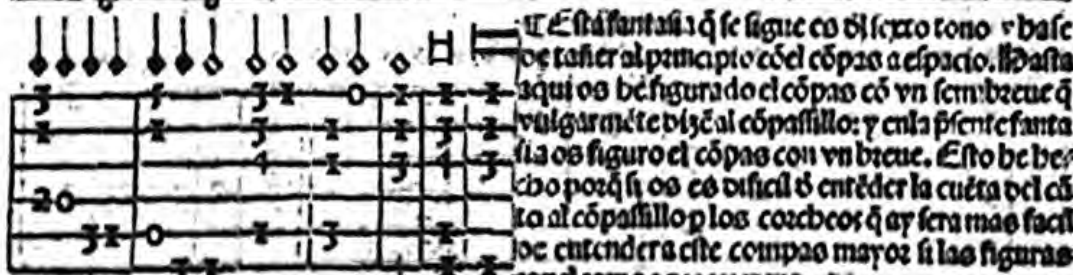 ¶ Esta fantasia q̃ se sigue es dl̃ sexto tono y hase
de tañer al principio cõel cõpas a espacio. Hasta
aqui os he figurado el cõpas cõ vn semibreue q̃
vulgarmẽte dizẽ al cõpasillo: y enla p̃sente fanta
sia os figuro el cõpas con vn breue. Esto he he-
cho porq̃ si os es dificil d̃ entẽder la cuẽta del cã
to al cõpasillo p̱ los corcheos q̃ ay sera mas facil
de entender a este compas mayor si las figuras